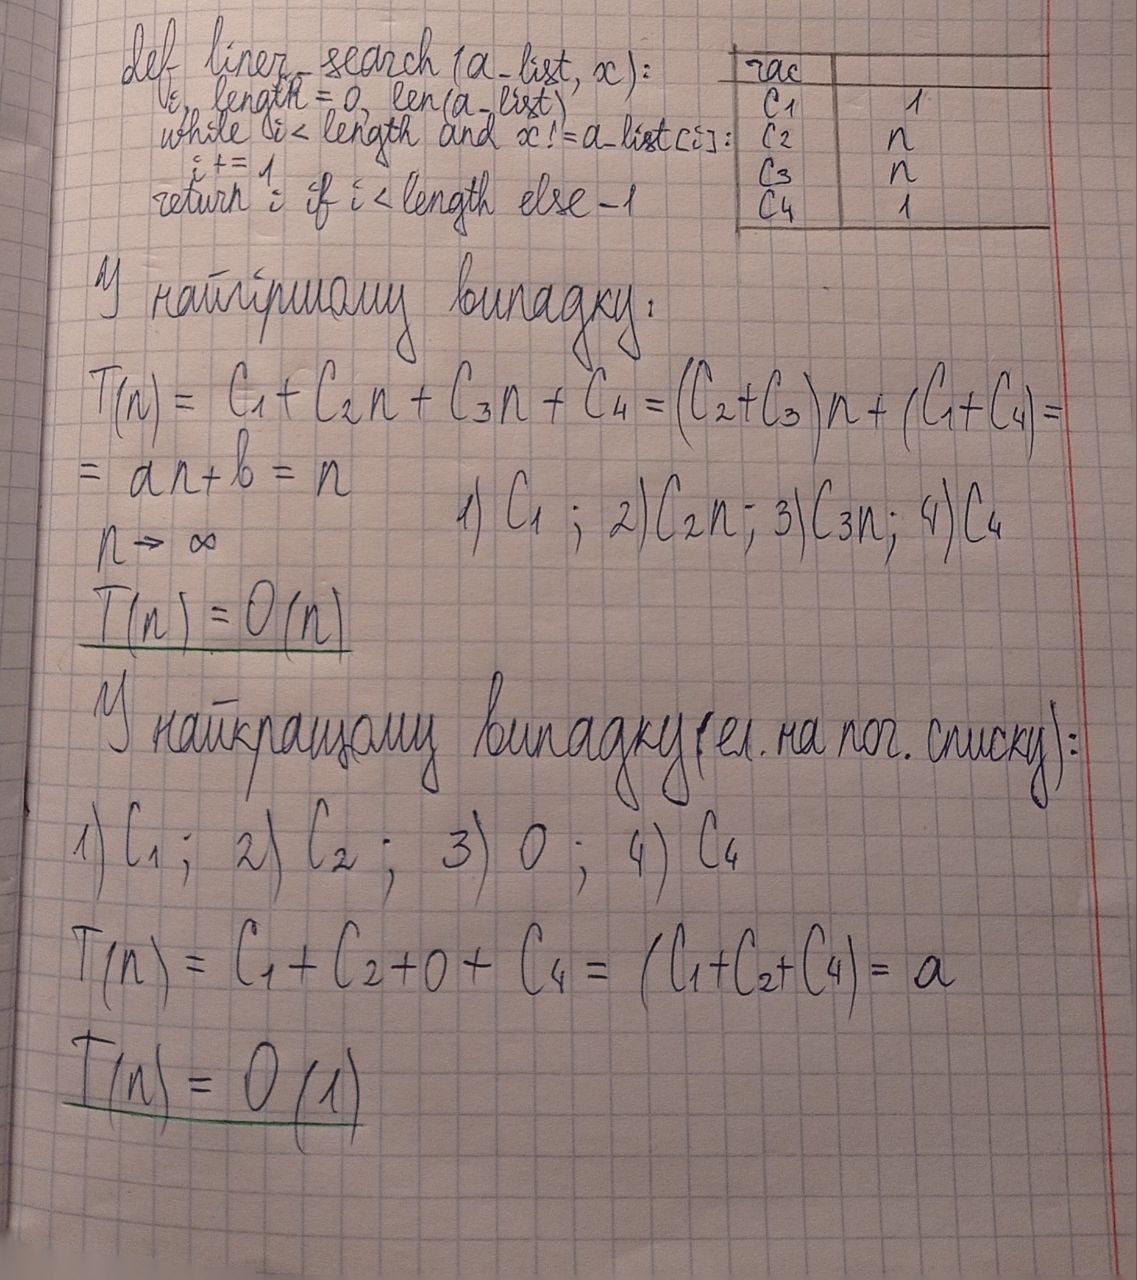 def liner_search (a_list, x):
i, length = 0, len(a_list)
while i < length and x != a_list[i]:
i += 1
return i if i < length else -1
час
C1 1
C2 n
C3 n
C4 1
У найгіршому випадку:
T(n) = C₁ + C₂n + C₃n + C₄ = (C₂+C₃)n + (C₁+C₄) =
= an + b = n
n → ∞
1) C₁ ; 2) C₂n; 3) C₃n; 4) C₄
T(n) = O(n)
У найкращому випадку (ел. на поч. списку):
1) C₁ ; 2) C₂ ; 3) 0 ; 4) C₄
T(n) = C₁ + C₂ + 0 + C₄ = (C₁+C₂+C₄) = a
T(n) = O(1)